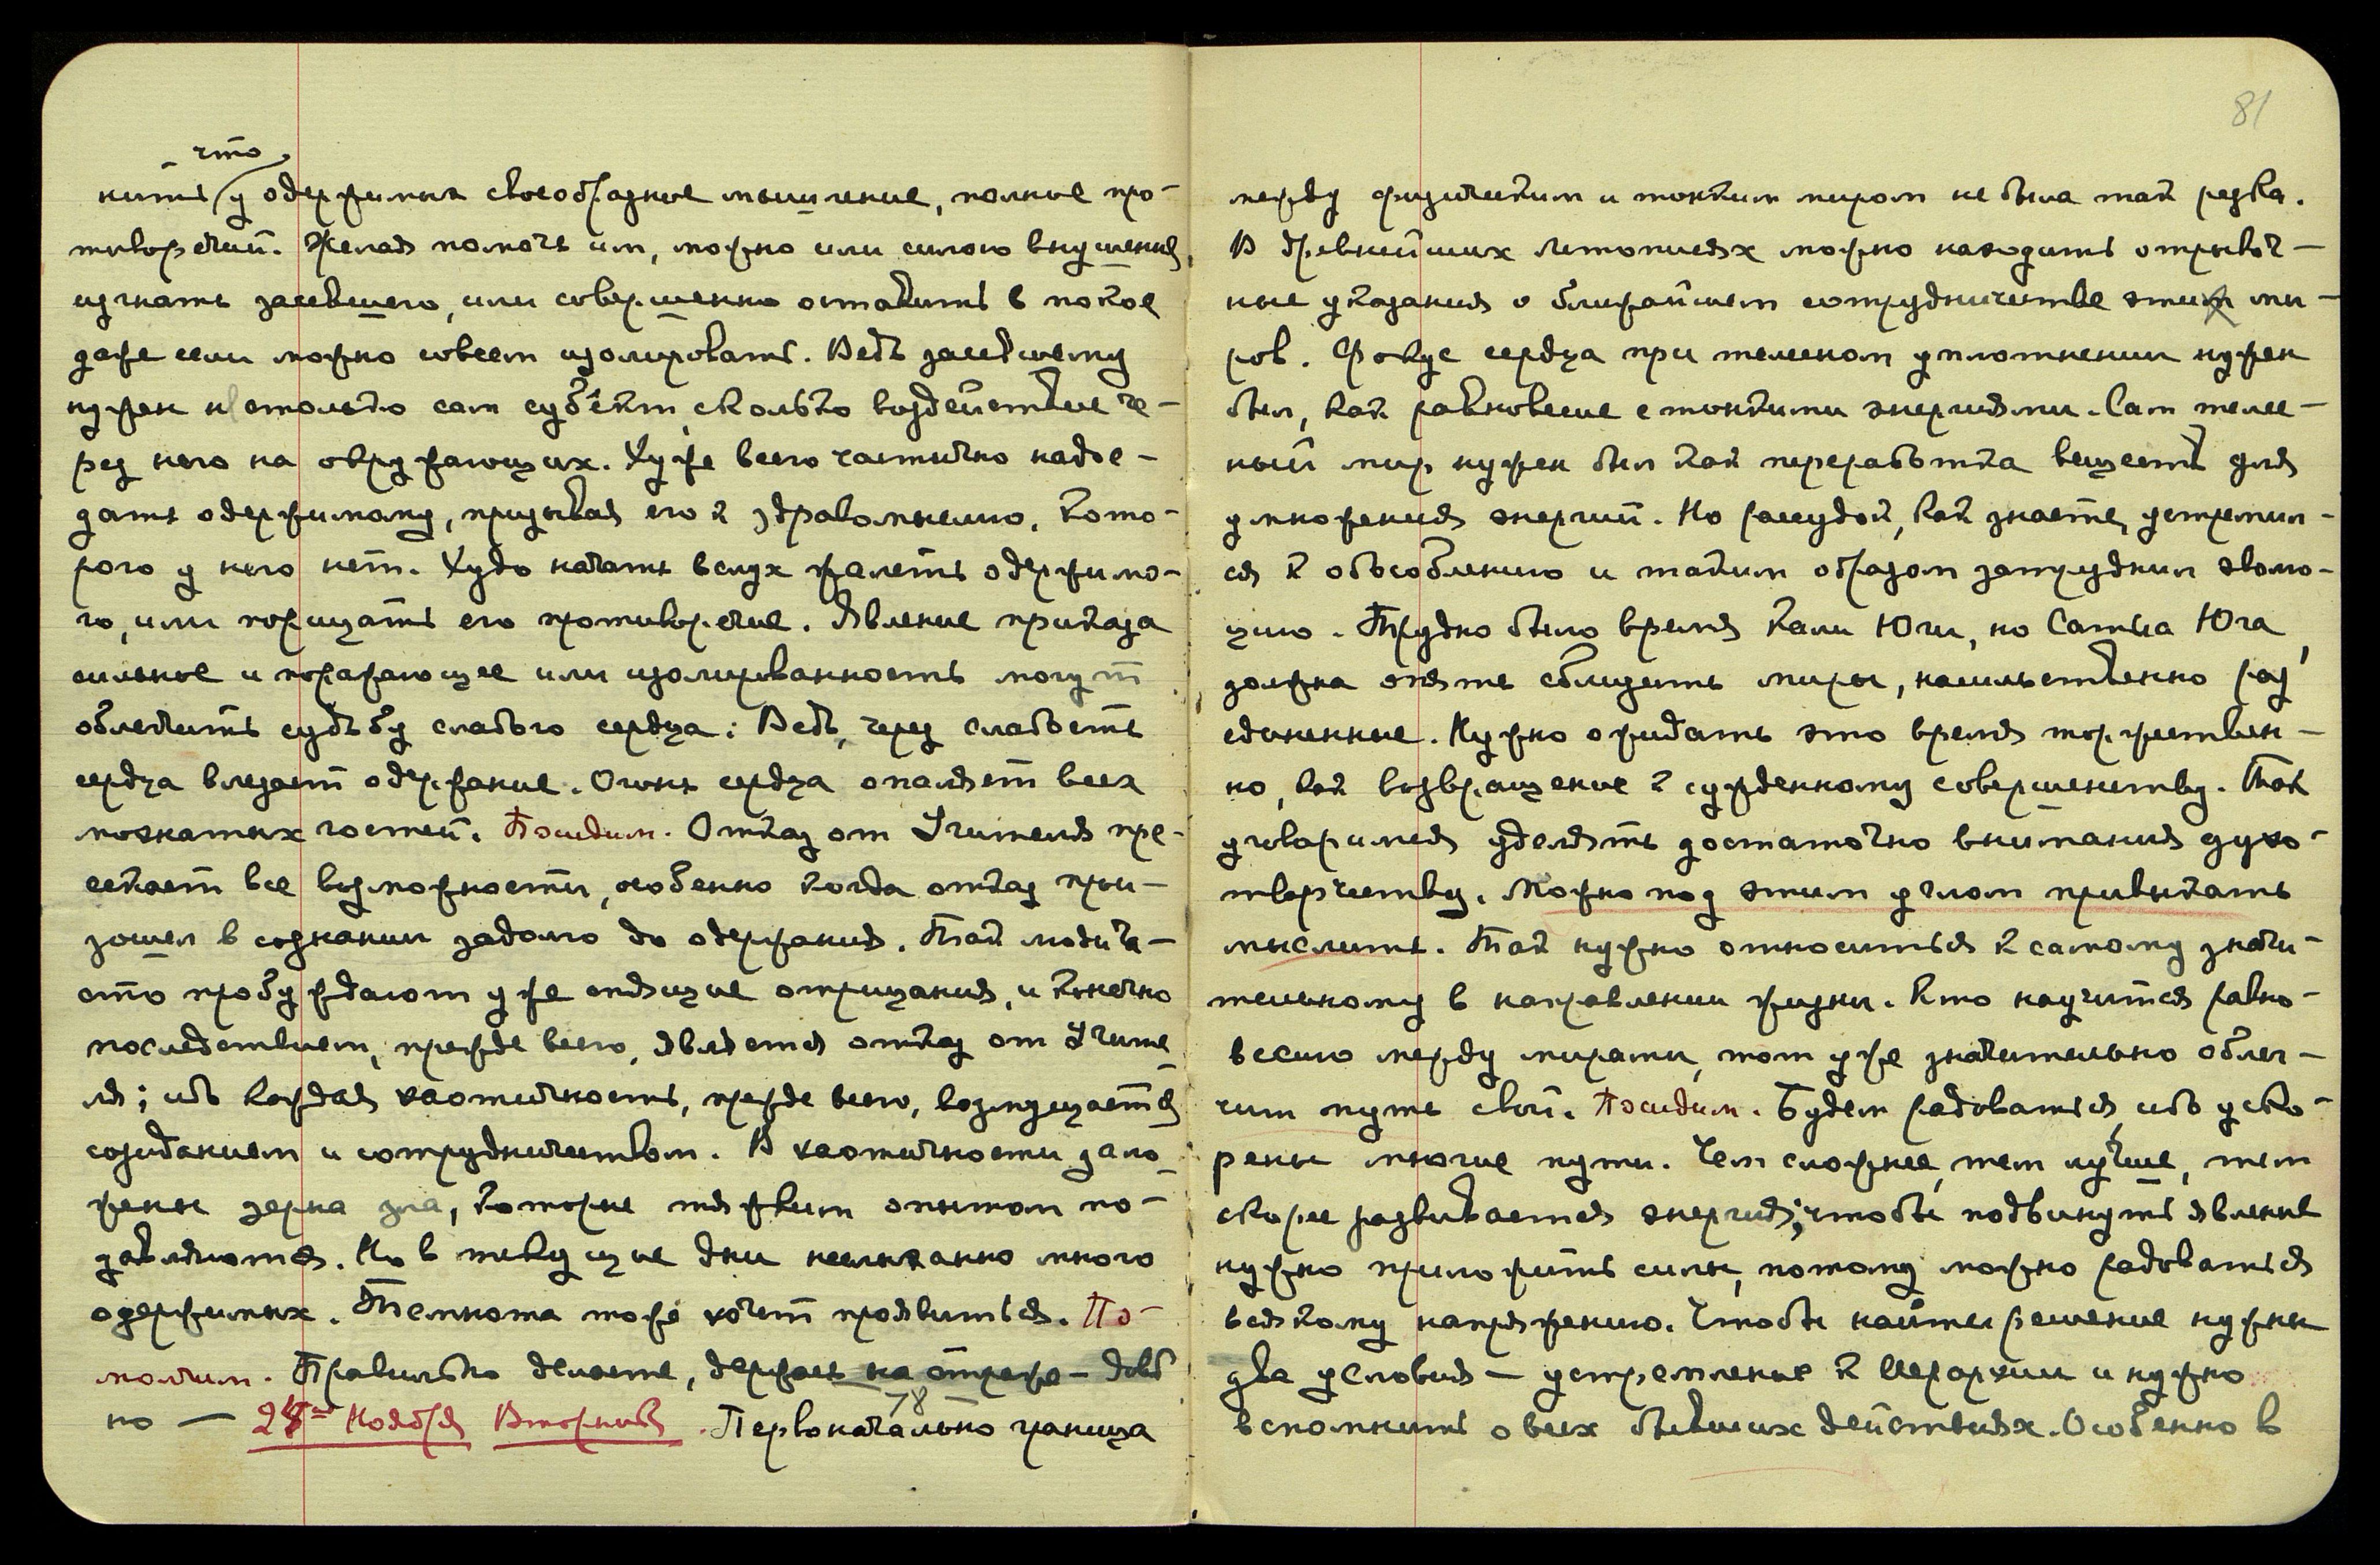 что
нить у одержимых своеобразное мышление, полное про-
тиворечий. Желая помочь им, можно или силою внушения
изгнать засевшего, или совершенно оставить в покое
даже если можно совсем изолировать. Ведь засевшему
нужен не столько сам субъект, сколько воздействие че-
рез него на окружающих. Хуже всего частично надое-
дать одержимому, призывая его к здравомыслию, кото-
рого у него нет. Худо начать вслух жалеть одержимо-
го, или порицать его противоречие. Явление приказа
сильное и поражающее или изолированность могут
облегчить судьбу слабого сердца: Ведь, через слабость
сердца влезает одержание. Огонь сердца опаляет всех
мохнатых гостей. Посидим. Отказ от Учителя пре-
секает все возможности, особенно когда отказ прои-
зошел в сознании задолго до одержания. Так люди ча-
сто пробуждают уже спящие отрицания, и конечно
последствием, прежде всего, является отказ от Учите-
ля; ибо каждая хаотичность, прежде всего, возмущается
созиданием и сотрудничеством. В хаотичности зало-
жены зерна зла, которые тяжким опытом по-
давляются. Но в текущие дни неслыханно много
одержимых. Темнота тоже хочет проявиться. По-
молчим. Правильно делаете, держась на страже — довол
но — 24го Ноября Вторник. Первоначально граница
78
81
между физическим и тонким миром не была так резка.
В древнейших летописях можно находить отрывоч-
ные указания о ближайшем сотрудничестве этих ми-
ров. Фокус сердца при телесном уплотнении нужен
был, как равновесие с тонкими энергиями. Сам телес-
ный мир нужен был как переработка веществ для
умножения энергий. Но рассудок, как знаете, устремил-
ся к обособлению и таким образом затруднил эволю-
цию. Трудно было время Кали Юги, но Сатиа Юга
должна опять сблизить миры, насильственно раз
единенные. Нужно ожидать это время торжествен-
но, как возвращение к сужденному совершенству. Так
уговоримся уделять достаточно внимания духо-
творчеству. Можно под этим углом привыкать
мыслить. Так нужно относиться к самому значи-
тельному в направлении жизни. Кто научится равно-
весию между мирами, тот уже значительно облег-
чит путь свой. Посидим. Будем радоваться, ибо уско-
рены многие пути. Чем сложнее, тем лучше, тем
скорее развивается энергия; чтобы подвинуть явление
нужно приложить силы, потому можно радоваться
всякому напряжению. Чтобы найти решение нужны
два условия — устремление к Иерархии и нужно
вспомнить о всех бывших действиях. Особенно в